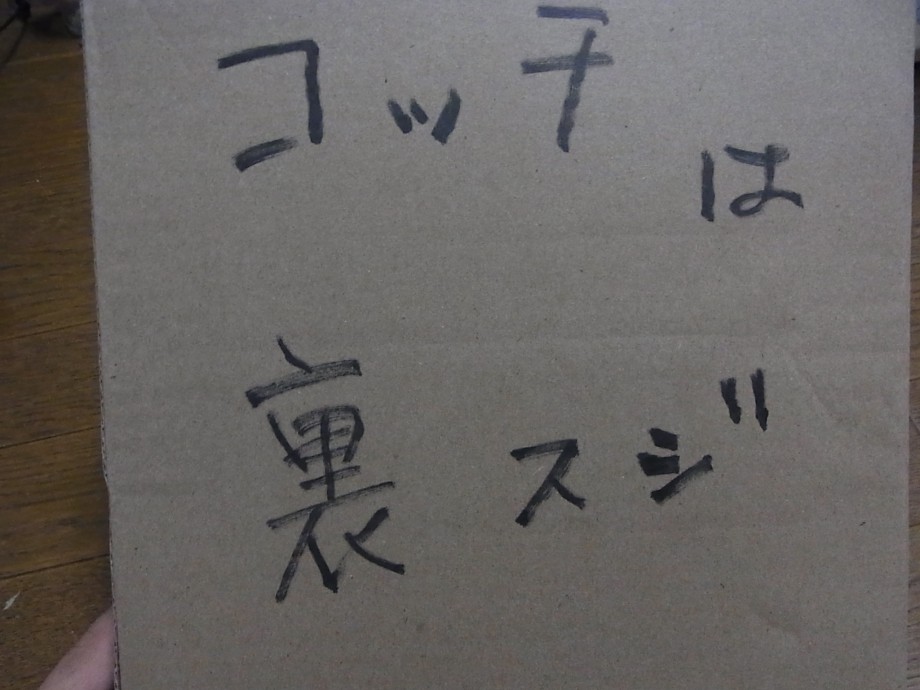 コッチは
裏スジ